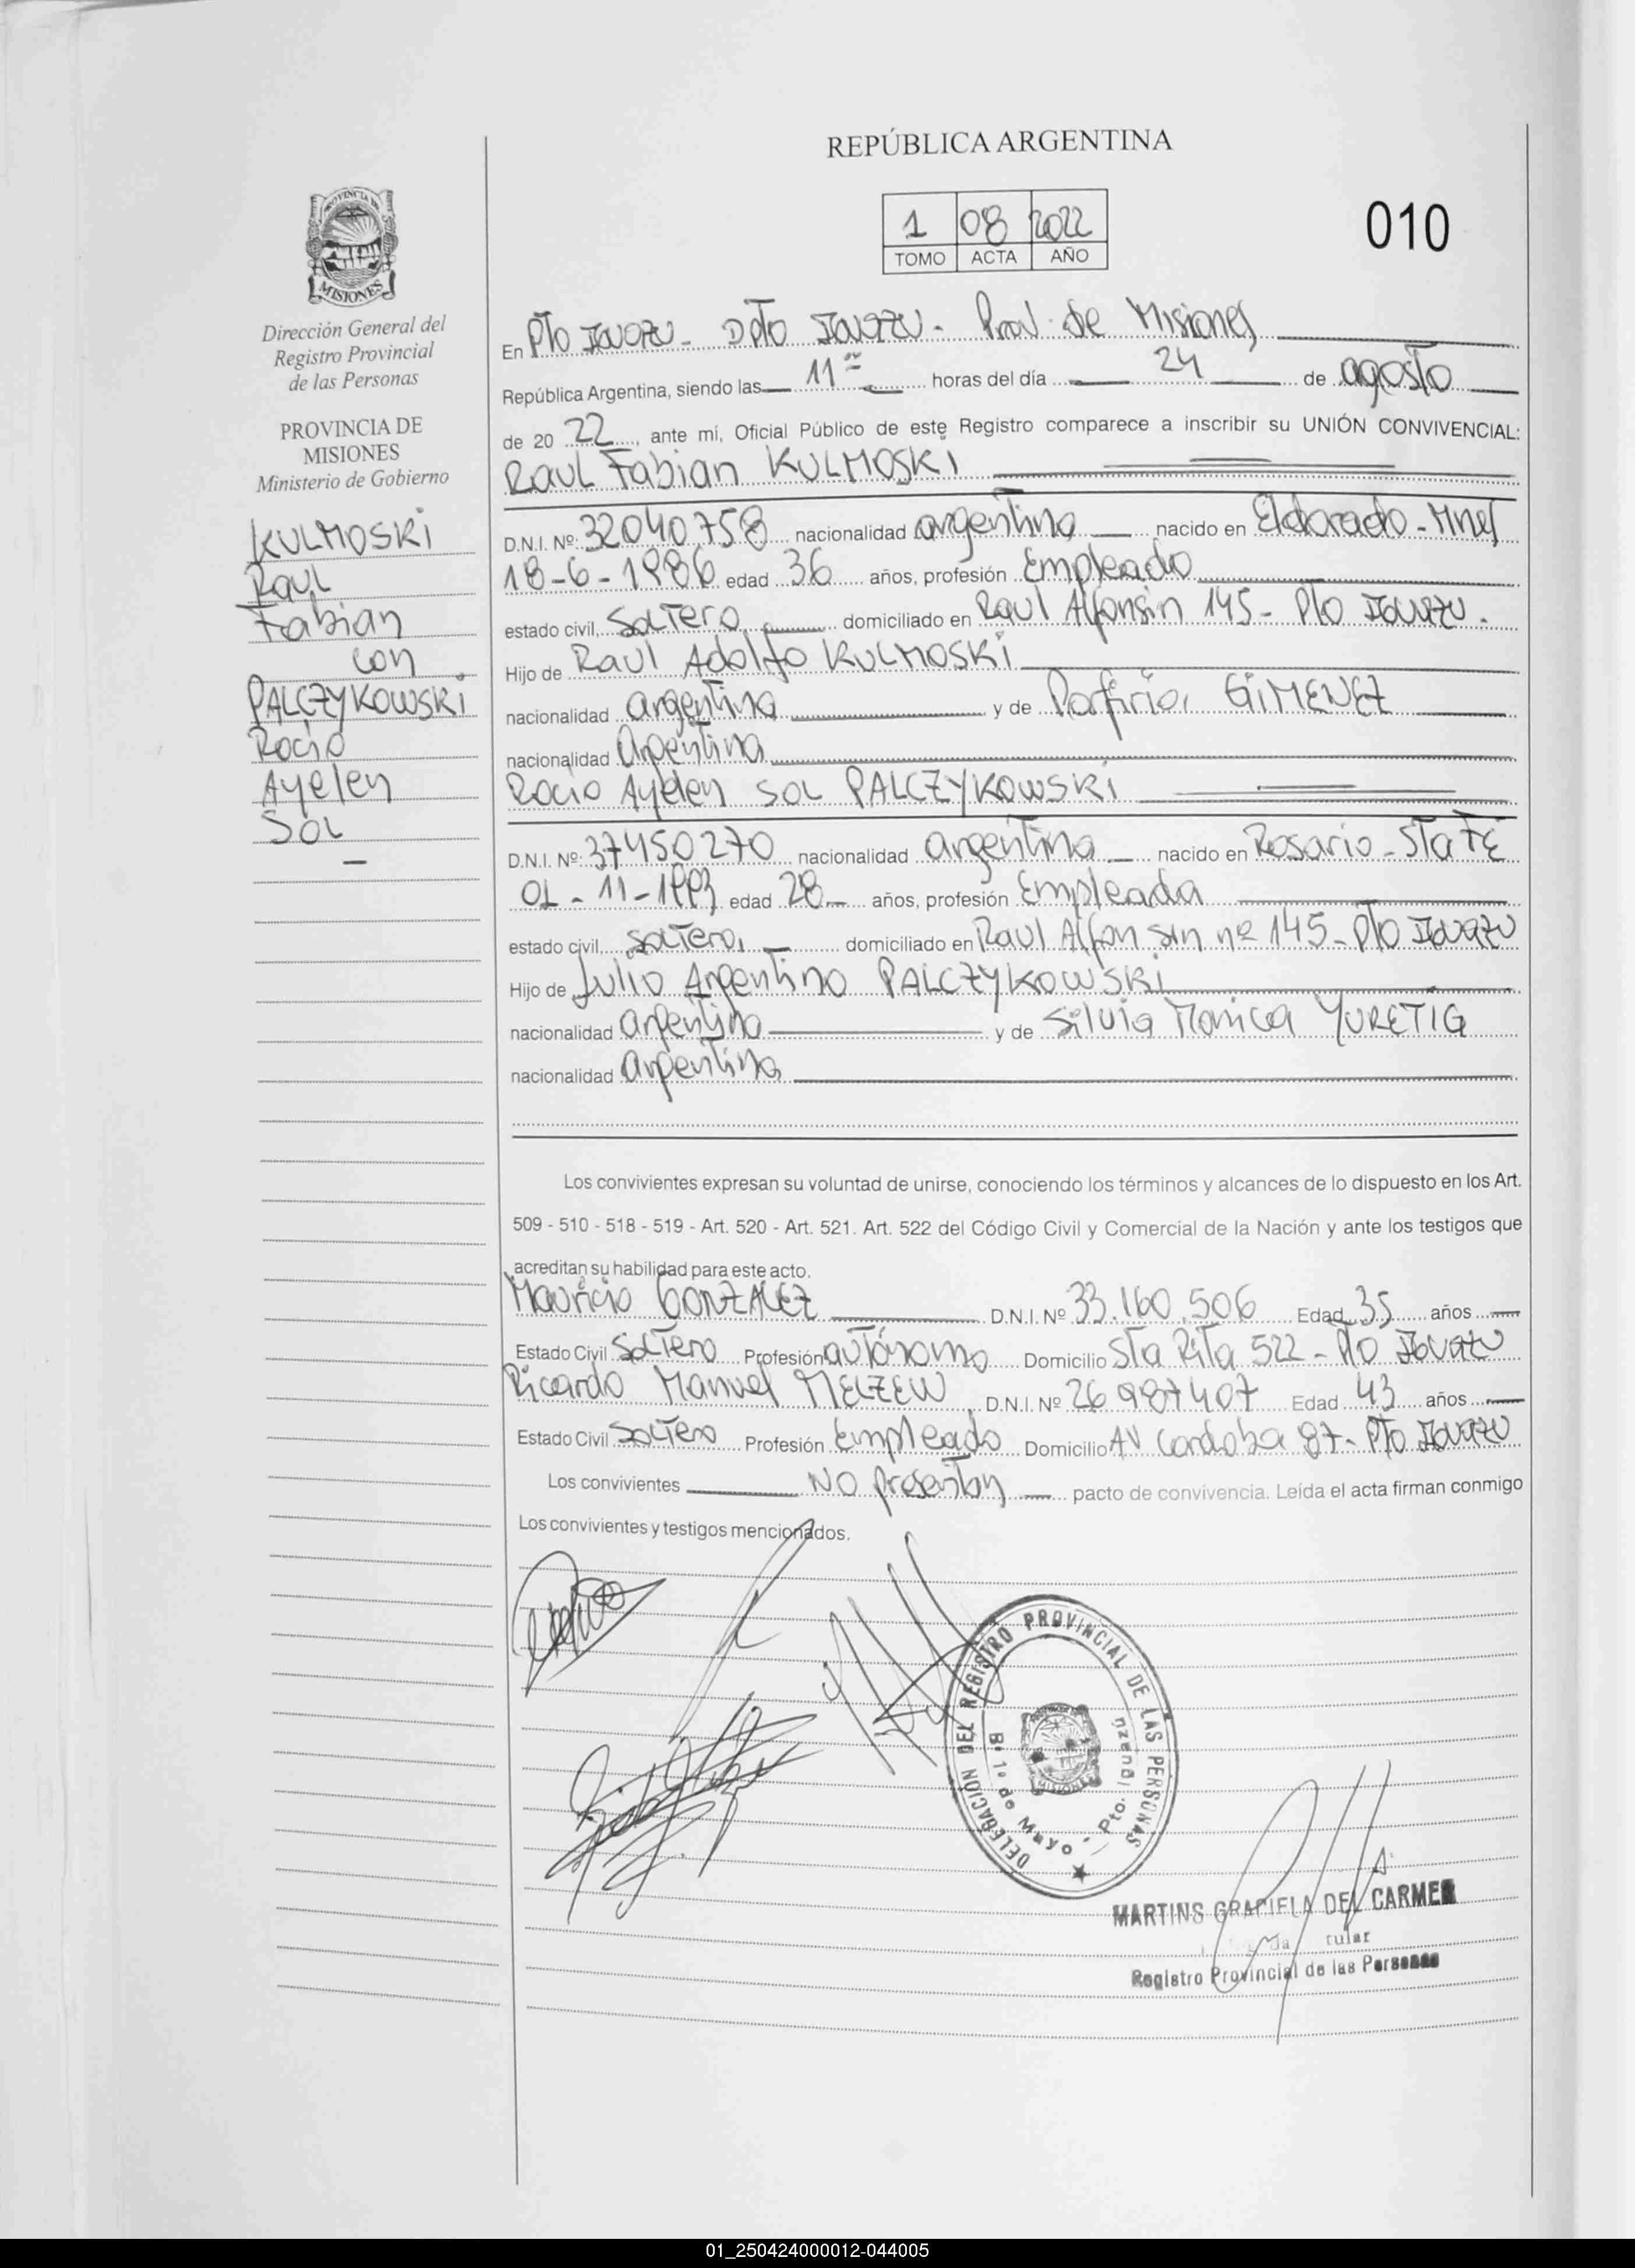 REPÚBLICA ARGENTINA
1 08 2022
TOMO ACTA AÑO
010
PROVINCIA DE
MISIONES
Dirección General del
Registro Provincial
de las Personas
PROVINCIA DE
MISIONES
Ministerio de Gobierno
KULMOSKI
Raul
Fabian
con
PALCZYKOWSKI
Rocio
Ayelen
SOL
En Pto Iguazu - Dpto Iguazu - Prov. de Misiones
República Argentina, siendo las 11 horas del día 24 de agosto
de 20 22, ante mí, Oficial Público de este Registro comparece a inscribir su UNIÓN CONVIVENCIAL:
Raul Fabian KULMOSKI
D.N.I. Nº: 32040758 nacionalidad argentina nacido en Eldorado - Mnes
18-6-1986 edad 36 años, profesión Empleado
estado civil, Soltero domiciliado en Raul Alfonsin 145 - Pto Iguazu.
Hijo de Raul Adolfo KULMOSKI
nacionalidad argentina y de Porfiria GIMENEZ
nacionalidad Argentina
Rocio Ayelen SOL PALCZYKOWSKI
D.N.I. Nº: 37450270 nacionalidad argentina nacido en Rosario - Sta FE
01-11-1993 edad 28 años, profesión Empleada
estado civil, Soltera domiciliado en Raul Alfonsin nº 145 - Pto Iguazu
Hijo de Julio Argentino PALCZYKOWSKI
nacionalidad argentina y de Silvia Monica YURETIG
nacionalidad argentina
Los convivientes expresan su voluntad de unirse, conociendo los términos y alcances de lo dispuesto en los Art.
509 - 510 - 518 - 519 - Art. 520 - Art. 521. Art. 522 del Código Civil y Comercial de la Nación y ante los testigos que
acreditan su habilidad para este acto.
Mauricio GONZALEZ D.N.I. Nº 33.160.506 Edad 35 años
Estado Civil Soltero Profesión autónomo Domicilio Sta Rita 522 - Pto Iguazu
Ricardo Manuel MELZEW D.N.I. Nº 26987407 Edad 43 años
Estado Civil Soltero Profesión Empleado Domicilio AV Cordoba 87 - Pto Iguazu
Los convivientes NO presentan pacto de convivencia. Leída el acta firman conmigo
Los convivientes y testigos mencionados.
DELEGACION DEL REGISTRO PROVINCIAL DE LAS PERSONAS
Bº 1º de Mayo - Pto. Iguazu
MISIONES
MARTINS GRACIELA DEL CARMEN
Registro Provincial de las Personas
01_250424000012-044005